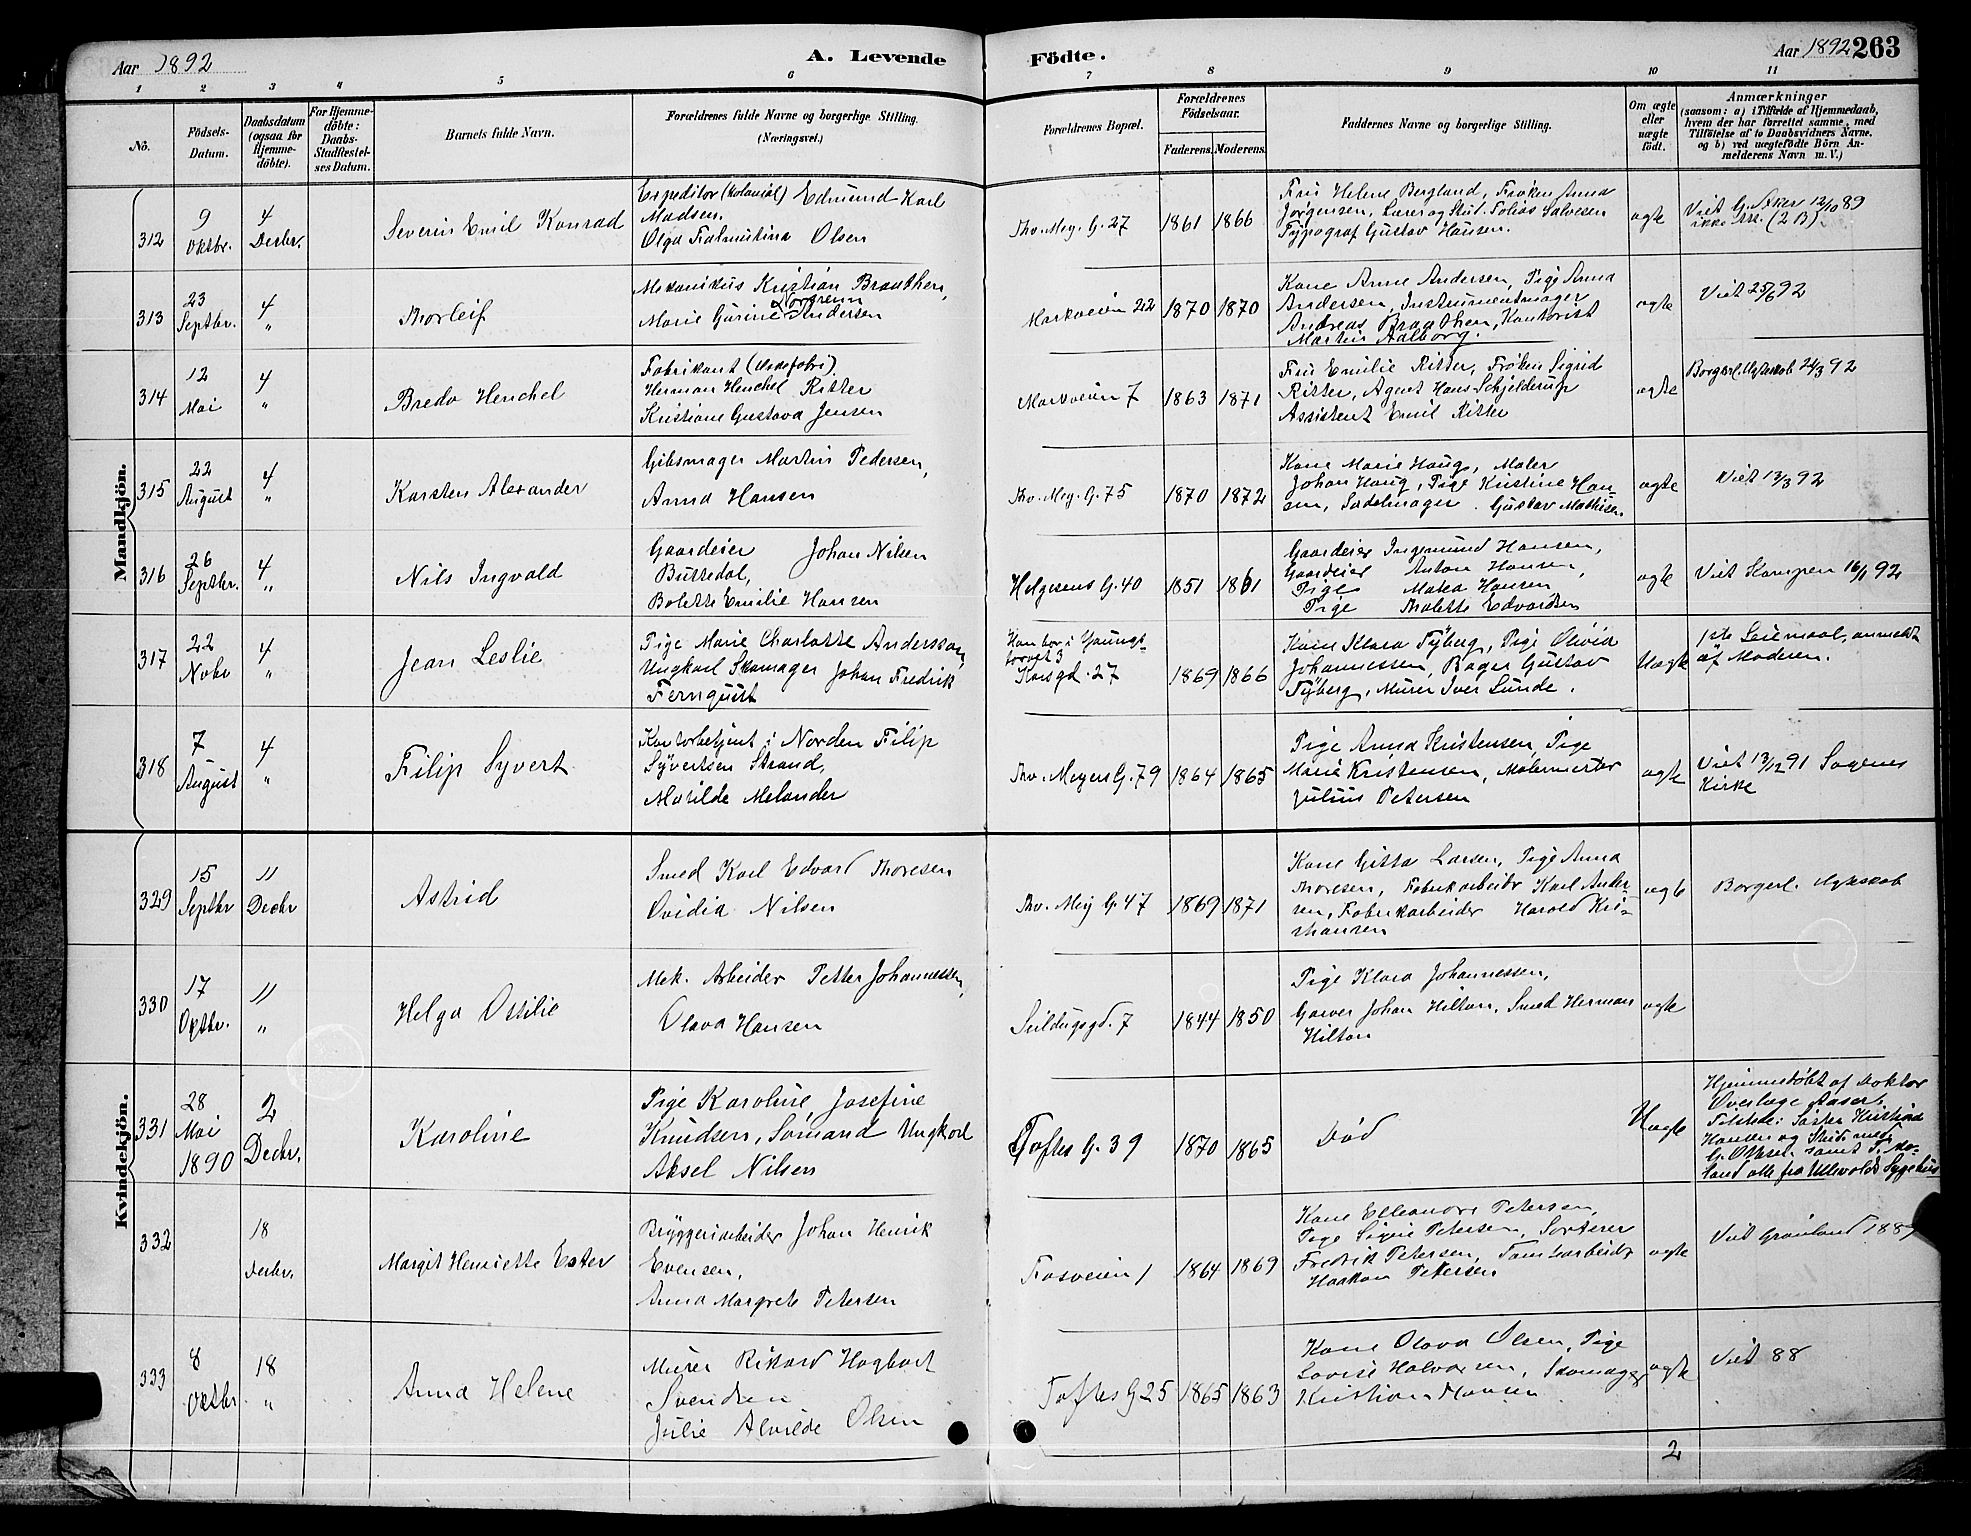 Aar 1892
A. Levende
Födte.
Aar 1892
263
1 2 3 4 5 6 7 8 9 10 11
No.
Födsels-
Datum.
Daabsdatum
(ogsaa for
Hjemme-
döbte).
For Hjemme-
döbte:
Daabs-
Stadfæstel-
ses Datum.
Barnets fulde Navn.
Forældrenes fulde Navne og borgerlige Stilling.
(Næringsvei.)
Forældrenes Bopæl.
Forældrenes
Födselsaar.
Faderens. Moderens.
Faddernes Navne og borgerlige Stilling.
Om ægte
eller
uægte
födt.
Anmærkninger
(saasom: a) i Tilfælde af Hjemmedaab,
hvem der har forrettet samme, med
Tilföielse af to Daabsvidners Navne,
og b) ved uægtefödte Börn An-
melderens Navn m. V.)
Mandkjön.
312
9
Oktbr.
4
Decbr.
Severin Emil Konrad
Expeditor (Kolonial) Edmund Karl
Madsen.
Olga Olsen
Thv. Mey. G. 27
1861 1866
Fru Helene Bergland, Frøken Anna
Jørgensen, Lærer og Stud. Tobias Salvesen
Typograf Gustav Hansen.
ægte
Viet G. Aker 12/10 89
ikke (2 B)
313
23
Septbr.
4
"
Thorleif
Mekanikus Kristian Braathen,
Norgrenn
Marie Gurine Andersen
Markveien 22
1870 1870
Kone Anne Andersen, Pige Anna
Andersen, Instrumentmager
Andreas Braathen, Kontorist
Martin Aalborg.
ægte
Viet 25/6 92
314
12
Mai
4
"
Bredo Henchel
Fabrikant
Herman Henchel Ritter
Kristiane Gustava Jensen
Markveien 7
1863 1871
Fru Emilie Ritter, Frøken Sigrid
Ritter, Agent Hans Schjelderup
Assistent Emil Ritter
ægte
Borgerl. Ægteskab 24/3 92
315
22
August
4
"
Karsten Alexander
Gibsmager Martin Pedersen,
Anna Hansen
Thv. Mey. G. 75
1870 1872
Kone Marie Haug, Maler
Johan Haug, Pige Kristine Han-
sen, Sadelmager. Gustav Mathisen
ægte
Viet 13/3 92
316
26
Septbr.
4
"
Nils Ingvald
Gaardeier Johan Nilsen
Buttedal,
Bolette Emilie Hansen
Helgesens G. 40
1851 1861
Gaardeier Ingemund Hansen,
Gaardeier Anton Hansen,
Pige Matea Hansen
Pige Thalette Edvardsen
ægte
Viet Kampen 16/1 92
317
22
Nobr
4
"
Jean Leslie
Pige Marie Charlotte Andersson,
Ungkarl Skomager Johan Fredrik
Fernquist
Han bor i Youngs-
torvet 3
Korsgd. 27
1869 1866
Kone Klara Tÿberg, Pige Olivia
Johannessen, Bager Gustav
Tÿberg, Murer Iver Lunde.
Uægte
1ste Leiemaal, anmeldt
af Moderen.
318
7
August
4
"
Filip Syvert
Kontorbetjent i Norden Filip
Syvertsen Strand,
Matilde Melander
Thv. Meyers G. 79
1864 1865
Pige Anna Kristensen, Pige
Marie Kristensen, Malermester
Julius Petersen
ægte
Viet 13/12 91 Sagenes
Kirke
Kvindekjön.
329
15
Septbr
11
Decbr
Astrid
Smed Karl Edvard Thoresen
Ovidia Nilsen
Thv. Mey G. 47
1869 1871
Kone Gitta Larsen, Pige Anna
Thoresen, Fabrikarbeidr Karl Ander-
sen, Fabrikarbeider Harald Kri-
stiansen
ægte
Borgerl. Ægteskab
330
17
Oktbr.
11
"
Helga Ottilie
Mek. Arbeider Petter Johannessen,
Olava Hansen
Seildugsgd. 7
1844 1850
Pige Klara Johannessen,
Garver Johan Hilton, Smed Herman
Hilton
ægte
331
28
Mai
1890
2
Decbr.
Karoline
Pige Karoline, Josefine
Knudsen, Sømand Ungkarl
Aksel Nilsen
Toftes G. 39
1870 1865
Død
Uægte
Hjemmedøbt af Doktor
Overlæge Aaser.
Tilstede: Søster Kristiane
Hansen og Stud. med.
G. samt T. Mo-
land alle fra Ullevolds Sygehus
332
18
Decbr.
Margit Henriette Ester
Bryggeriarbeider Johan Henrik
Evensen,
Anna Margrete Petersen
Fossveien 1
1864 1869
Kone Elleonore Petersen,
Pige Signe Petersen, Sorterer
Fredrik Petersen, Tomtearbeidr
Haakon Petersen
ægte
Viet Grønland 1889
333
8
Oktbr
18
"
Anna Helene
Murer Rikard Hagbart
Svendsen
Julie Alvilde Olsen
Toftes G 25
1865 1863
Kone Olava Olsen, Pige
Lovise Halvorsen, Skomager
Kristian Hansen
ægte
Viet 88
2